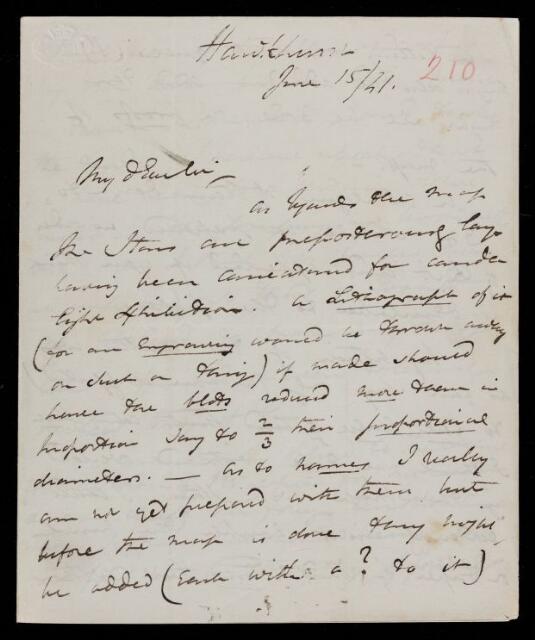 Hawkhurst
June 15/41.
210
My d Sir
as regards the map
the Stars are preposterously large
having been caricatured for candle
light Exhibition. A Lithograph of it
(for an Engraving would be thrown away
on such a thing) if made should
have the blots reduced more than in
proportion say to 2/3 their proportional
diameters. — as to names I really
am not yet prepared with them but
before the map is done they might
be added (Each with a ? to it)